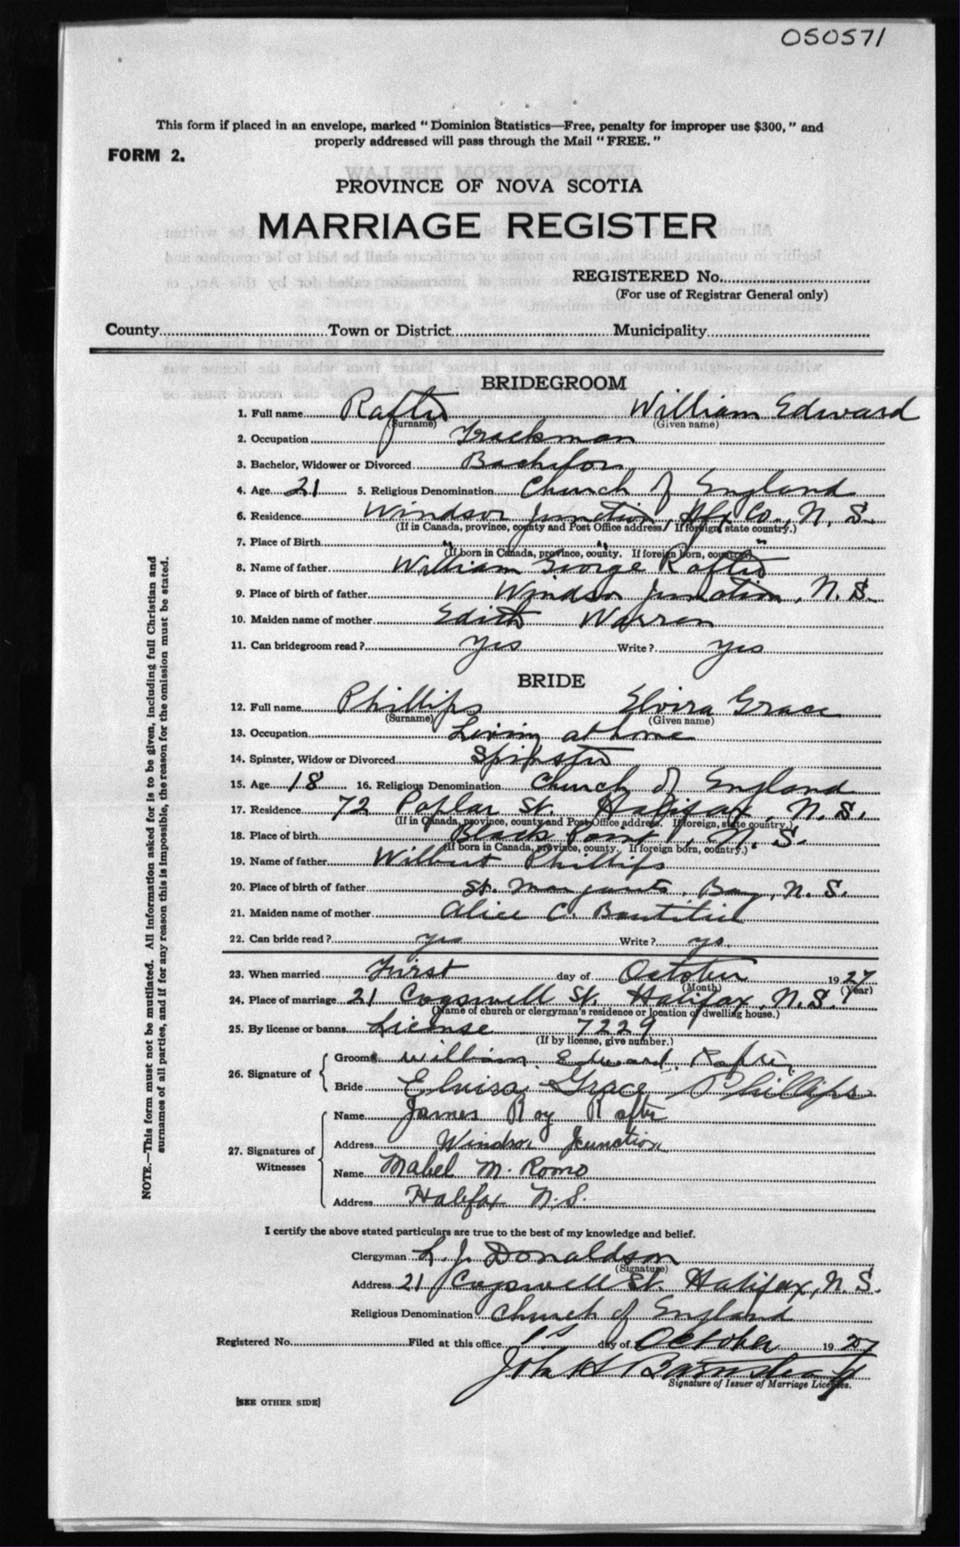 050571
This form if placed in an envelope, marked "Dominion Statistics—Free, penalty for improper use $300," and
properly addressed will pass through the Mail "FREE."
FORM 2.
PROVINCE OF NOVA SCOTIA
MARRIAGE REGISTER
REGISTERED No.
(For use of Registrar General only)
County Town or District Municipality
BRIDEGROOM
1. Full name William Edward
(Surname) (Given name)
2. Occupation Trackman
3. Bachelor, Widower or Divorced Bachelor
4. Age 21 5. Religious Denomination Church of England
6. Residence Windsor Junction, Hfx Co., N. S.
(If in Canada, province, county and Post Office address. If foreign, state country.)
7. Place of Birth " " "
(If born in Canada, province, county. If foreign born, country.)
8. Name of father William George
9. Place of birth of father Windsor Junction, N. S.
10. Maiden name of mother Edith Warren
11. Can bridegroom read? yes Write? yes
BRIDE
12. Full name Phillips Elvira Grace
(Surname) (Given name)
13. Occupation Living at home
14. Spinster, Widow or Divorced Spinster
15. Age 18 16. Religious Denomination Church of England
17. Residence 72 Poplar St. Halifax, N. S.
(If in Canada, province, county and Post Office address. If foreign, state country.)
18. Place of birth Black Point, N. S.
(If born in Canada, province, county. If foreign born, country.)
19. Name of father Wilbert Phillips
20. Place of birth of father St. Margarets Bay, N. S.
21. Maiden name of mother Alice C.
22. Can bride read? yes Write? yes
23. When married First day of October 1927
(Month) (Year)
24. Place of marriage 21 Cogswell St. Halifax, N. S.
(Name of church or clergyman's residence or location of dwelling house.)
25. By license or banns License 7229
(If by license, give number.)
26. Signature of Groom William Edward
Bride Elvira Grace Phillips
27. Signatures of Witnesses Name James Roy Rafter
Address Windsor Junction
Name Mabel M. Romo
Address Halifax N. S.
I certify the above stated particulars are true to the best of my knowledge and belief.
Clergyman L. J. Donaldson
(Signature)
Address 21 Cogswell St. Halifax, N. S.
Religious Denomination Church of England
Registered No. Filed at this office 1st day of October 1927
John H
Signature of Issuer of Marriage Licenses.
[SEE OTHER SIDE]
NOTE.—This form must not be mutilated. All information asked for is to be given, including full Christian and
surnames of all parties, and if for any reason this is impossible, the reason for the omission must be stated.